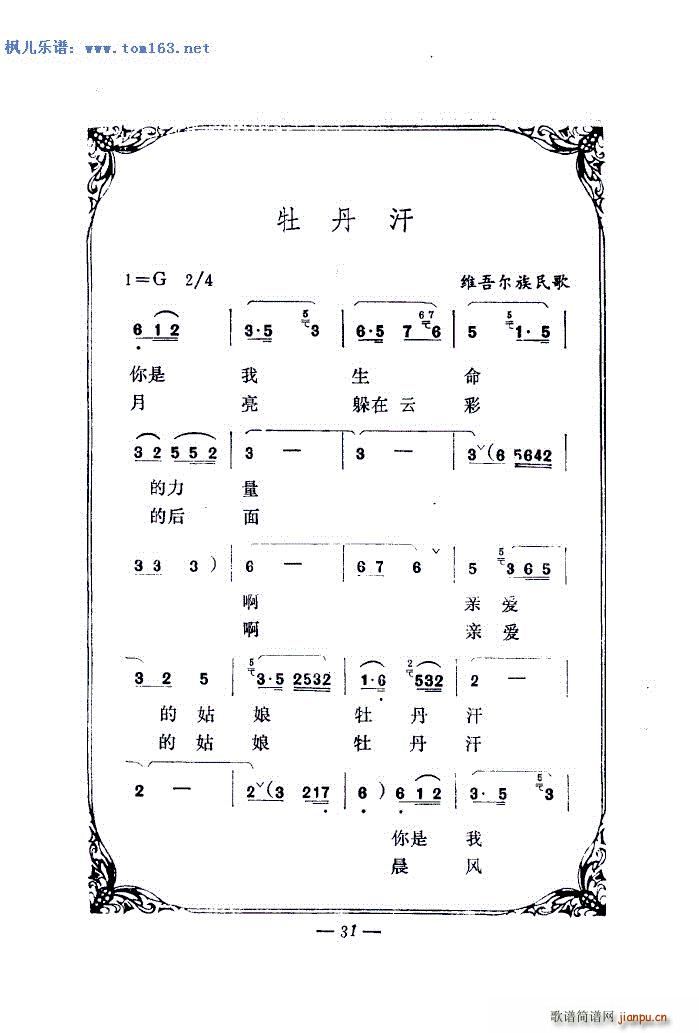 枫儿乐谱：www.tom163.net
牡丹汗
1=G 2/4 维吾尔族民歌
6 1 2 | 3·5 5 3 | 6·5 7 67 6 | 5 5 1·5 |
你是 我 生 命
月 亮 躲在 云 彩
3 2 5 5 2 | 3 — | 3 — | 3 (6 5642 |
的力 量
的后 面
3 3 3 ) | 6 — | 6 7 6 | 5 5 3 6 5 |
啊 亲 爱
啊 亲 爱
3 2 5 | 5 3·5 2532 | 1·6 2 532 | 2 — |
的姑 娘 牡 丹 汗
的姑 娘 牡 丹 汗
2 — | 2 (3 217 | 6 ) 6 1 2 | 3·5 5 3 |
你是 我
晨 风
— 31 —
歌谱简谱网
jianpu.cn